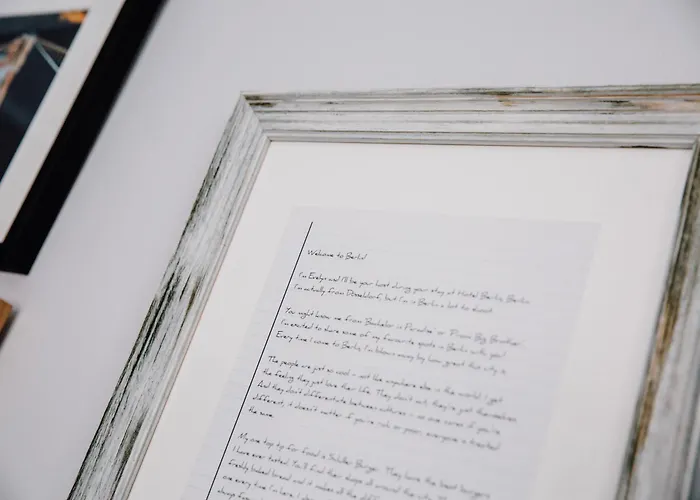 Welcome to Berlin!
I'm Evelyn and I'll be your host during your stay at Hotel Berlin, Berlin.
I'm actually from Düsseldorf, but I'm in Berlin a lot to shoot.
You might know me from 'Bachelor in Paradise' or 'Prom. Big Brother'.
I'm excited to share some of my favourite spots in Berlin with you!
Every time I come to Berlin, I'm blown away by how great this city is.
The people are just so cool - not like anywhere else in the world. I get
the feeling they just love their life. They don't act, they're just themselves.
And they don't differentiate between cultures - no one cares if you're
different, it doesn't matter if you're rich or poor, everyone is treated
the same.
My one top tip for food is Schiller Burger. They have the best burgers
I have ever tasted. You'll find their shops all around the city. They
freshly baked bread and it makes all the
one every time I'm here. I
always